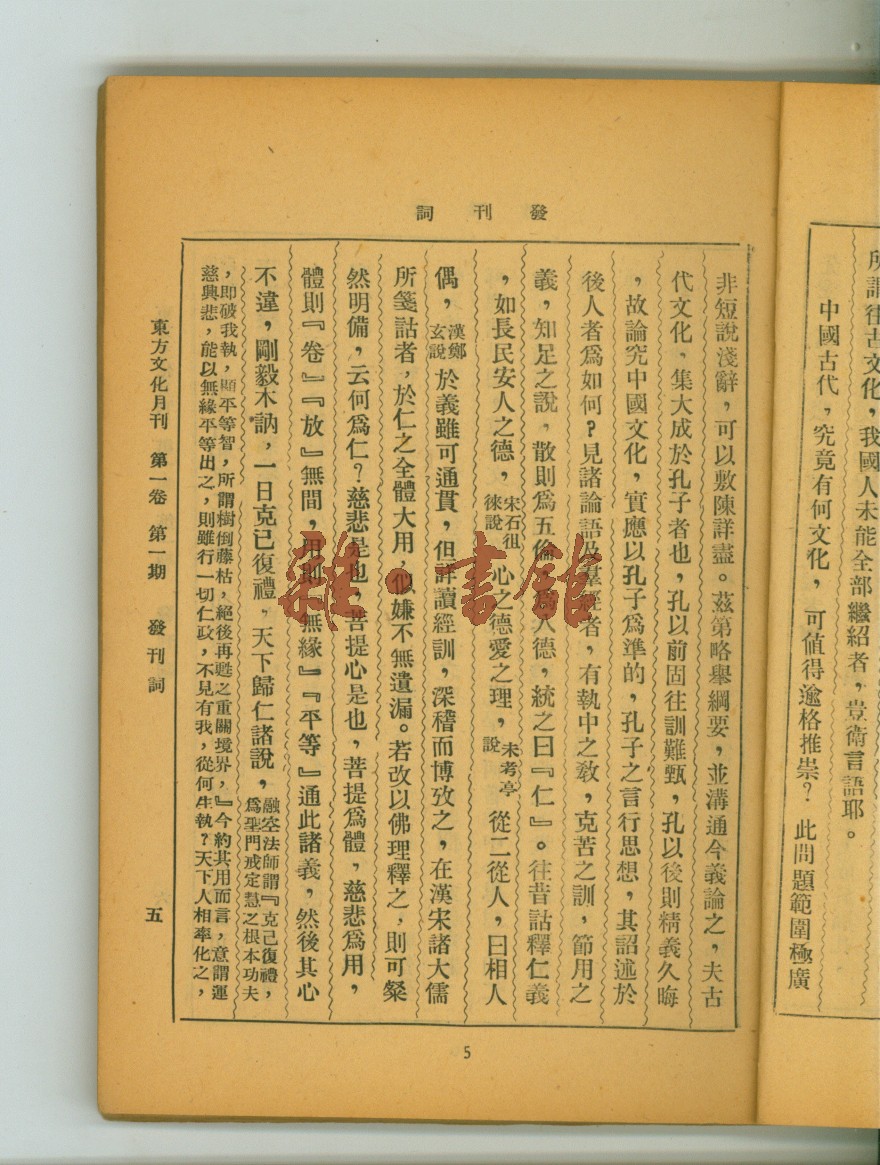 所謂往古文化，我國人未能全部繼紹者，豈衛言語耶。
中國古代，究竟有何文化，可值得逾格推崇？此問題範圍極廣
發刊詞
非短說淺辭，可以敷陳詳盡。茲第略舉綱要，並溝通今義論之，夫古
代文化，集大成於孔子者也，孔以前固往訓難甄，孔以後則精義久晦
，故論究中國文化，實應以孔子為準的，孔子之言行思想，其詔述於
後人者為如何？見諸論語及羣經者，有執中之敎，克苦之訓，節用之
義，知足之說，散則為五倫，為八德，統之曰『仁』。往昔詁釋仁義
，如長民安人之德，宋石徂徠說心之德愛之理，朱考亭說從二從人，曰相人
偶，漢鄭玄說於義雖可通貫，但詳讀經訓，深稽而博攷之，在漢宋諸大儒
所箋詁者，於仁之全體大用，似嫌不無遺漏。若改以佛理釋之，則可粲
然明備，云何為仁？慈悲是也，菩提心是也，菩提為體，慈悲為用，
體則『卷』『放』無間，用則『無緣』『平等』通此諸義，然後其心
不違，剛毅木訥，一日克已復禮，天下歸仁諸說，融空法師謂『克己復禮，為聖門戒定慧之根本功夫
，即破我執，顯平等智，所謂樹倒藤枯，絕後再甦之重關境界，』今約其用而言，意謂運
慈興悲，能以無緣平等出之，則雖行一切仁政，不見有我，從何生執？天下人相率化之，
東方文化月刊 第一卷 第一期 發刊詞 五
5
雜·書館